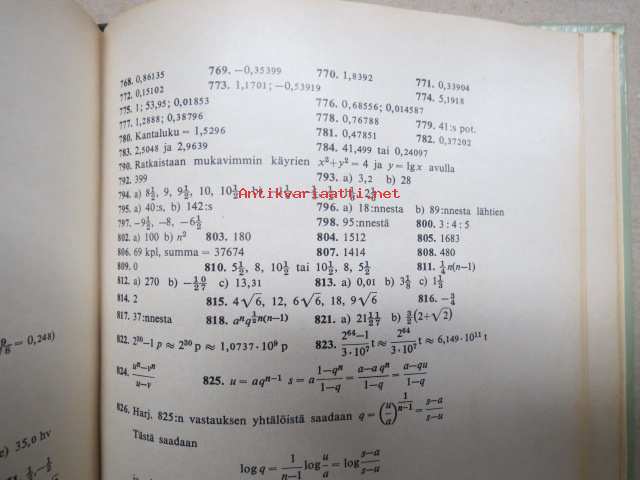 768. 0,86135 769. −0,35399 770. 1,8392 771. 0,33904
772. 0,15102 773. 1,1701; −0,53919 774. 5,1918
775. 1; 53,95; 0,01853 776. 0,68556; 0,014587
777. 1,2888; 0,38796 778. 0,76788 779. 41:s pot.
780. Kantaluku = 1,5296 781. 0,47851 782. 0,37202
783. 2,5048 ja 2,9639 784. 41,499 tai 0,24097
790. Ratkaistaan mukavimmin käyrien x²+y² = 4 ja y = lg x avulla
792. 399 793. a) 3,2 b) 28
794. a) 8½, 9, 9½, 10, 10½
Antikvariaatti.net
795. a) 40:s b) 142:s 796. a) 18:nnesta b) 89:nnesta lähtien
797. −9½, −8, −6½ 798. 95:nnestä 800. 3 : 4 : 5
802. a) 100 b) n² 803. 180 804. 1512 805. 1683
806. 69 kpl, summa = 37674 807. 1414 808. 480
809. 0 810. 5½, 8, 10½ tai 10½, 8, 5½ 811. ¼n(n−1)
812. a) 270 b) c) 13,31 813. a) 0,01 b) c)
814. 2 815. 4√6, 12, 6√6, 18, 9√6 816. −¾
817. 37:nnesta 818. aⁿq^{½n(n−1)} 821. a) b) (2+√2)
822. 2³⁰−1 p ≈ 2³⁰ p ≈ 1,0737·10⁹ p 823. (2⁶⁴−1)/(3·10⁷) t ≈ 2⁶⁴/(3·10⁷) t ≈ 6,149·10¹¹ t
824. (uⁿ−vⁿ)/(u−v) 825. u = aqⁿ⁻¹ s = a(1−qⁿ)/(1−q) = (a−aqⁿ)/(1−q) = (a−qu)/(1−q)
826. Harj. 825:n vastauksen yhtälöistä saadaan q = (u/a)^{1/(n−1)} = (s−a)/(s−u)
Tästä saadaan
log q = 1/(n−1) log u/a = log (s−a)/(s−u)
= 0,248)
e) 35,0 hv